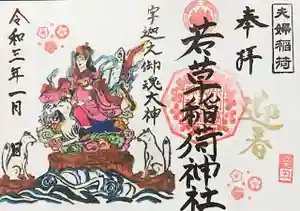 夫婦稲荷
奉拝
迎春
辛丑
若草稲荷神社
宇迦之御魂大神
令和三年一月　日